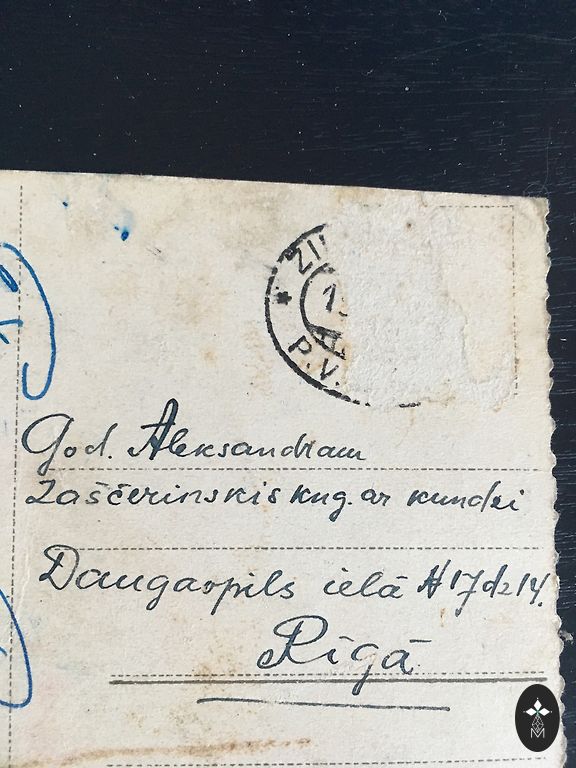 ZI
1
P.V.
God. Aleksandram
Zaščerinskis kng. ar kundzi
Daugavpils ielā № 17 dz 14.
Rīgā
M